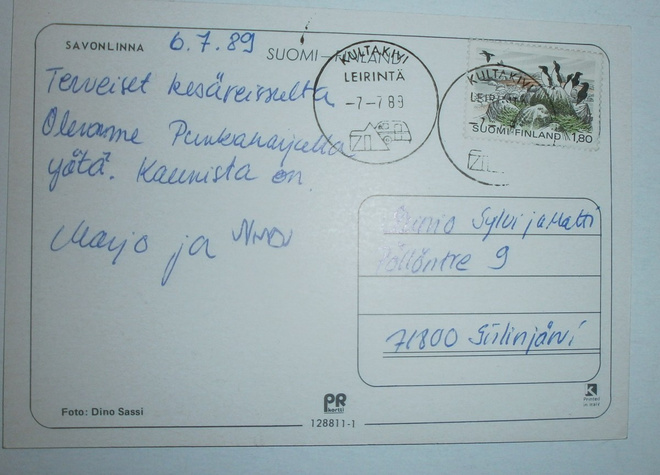 SAVONLINNA 6.7.89
SUOMI – FINLAND
Terveiset kesäreissulta
Olemme Punkaharjulla
yötä. Kaunista on.
Marjo ja
KULTAKIVI
LEIRINTÄ
-7-7 89
KULTAKIVI
LEIRINTÄ
SUOMI FINLAND 1,80
Sylvi ja Matti
9
71800 Siilinjärvi
Foto: Dino Sassi
PR
kortti
128811-1
Printed
in Italy